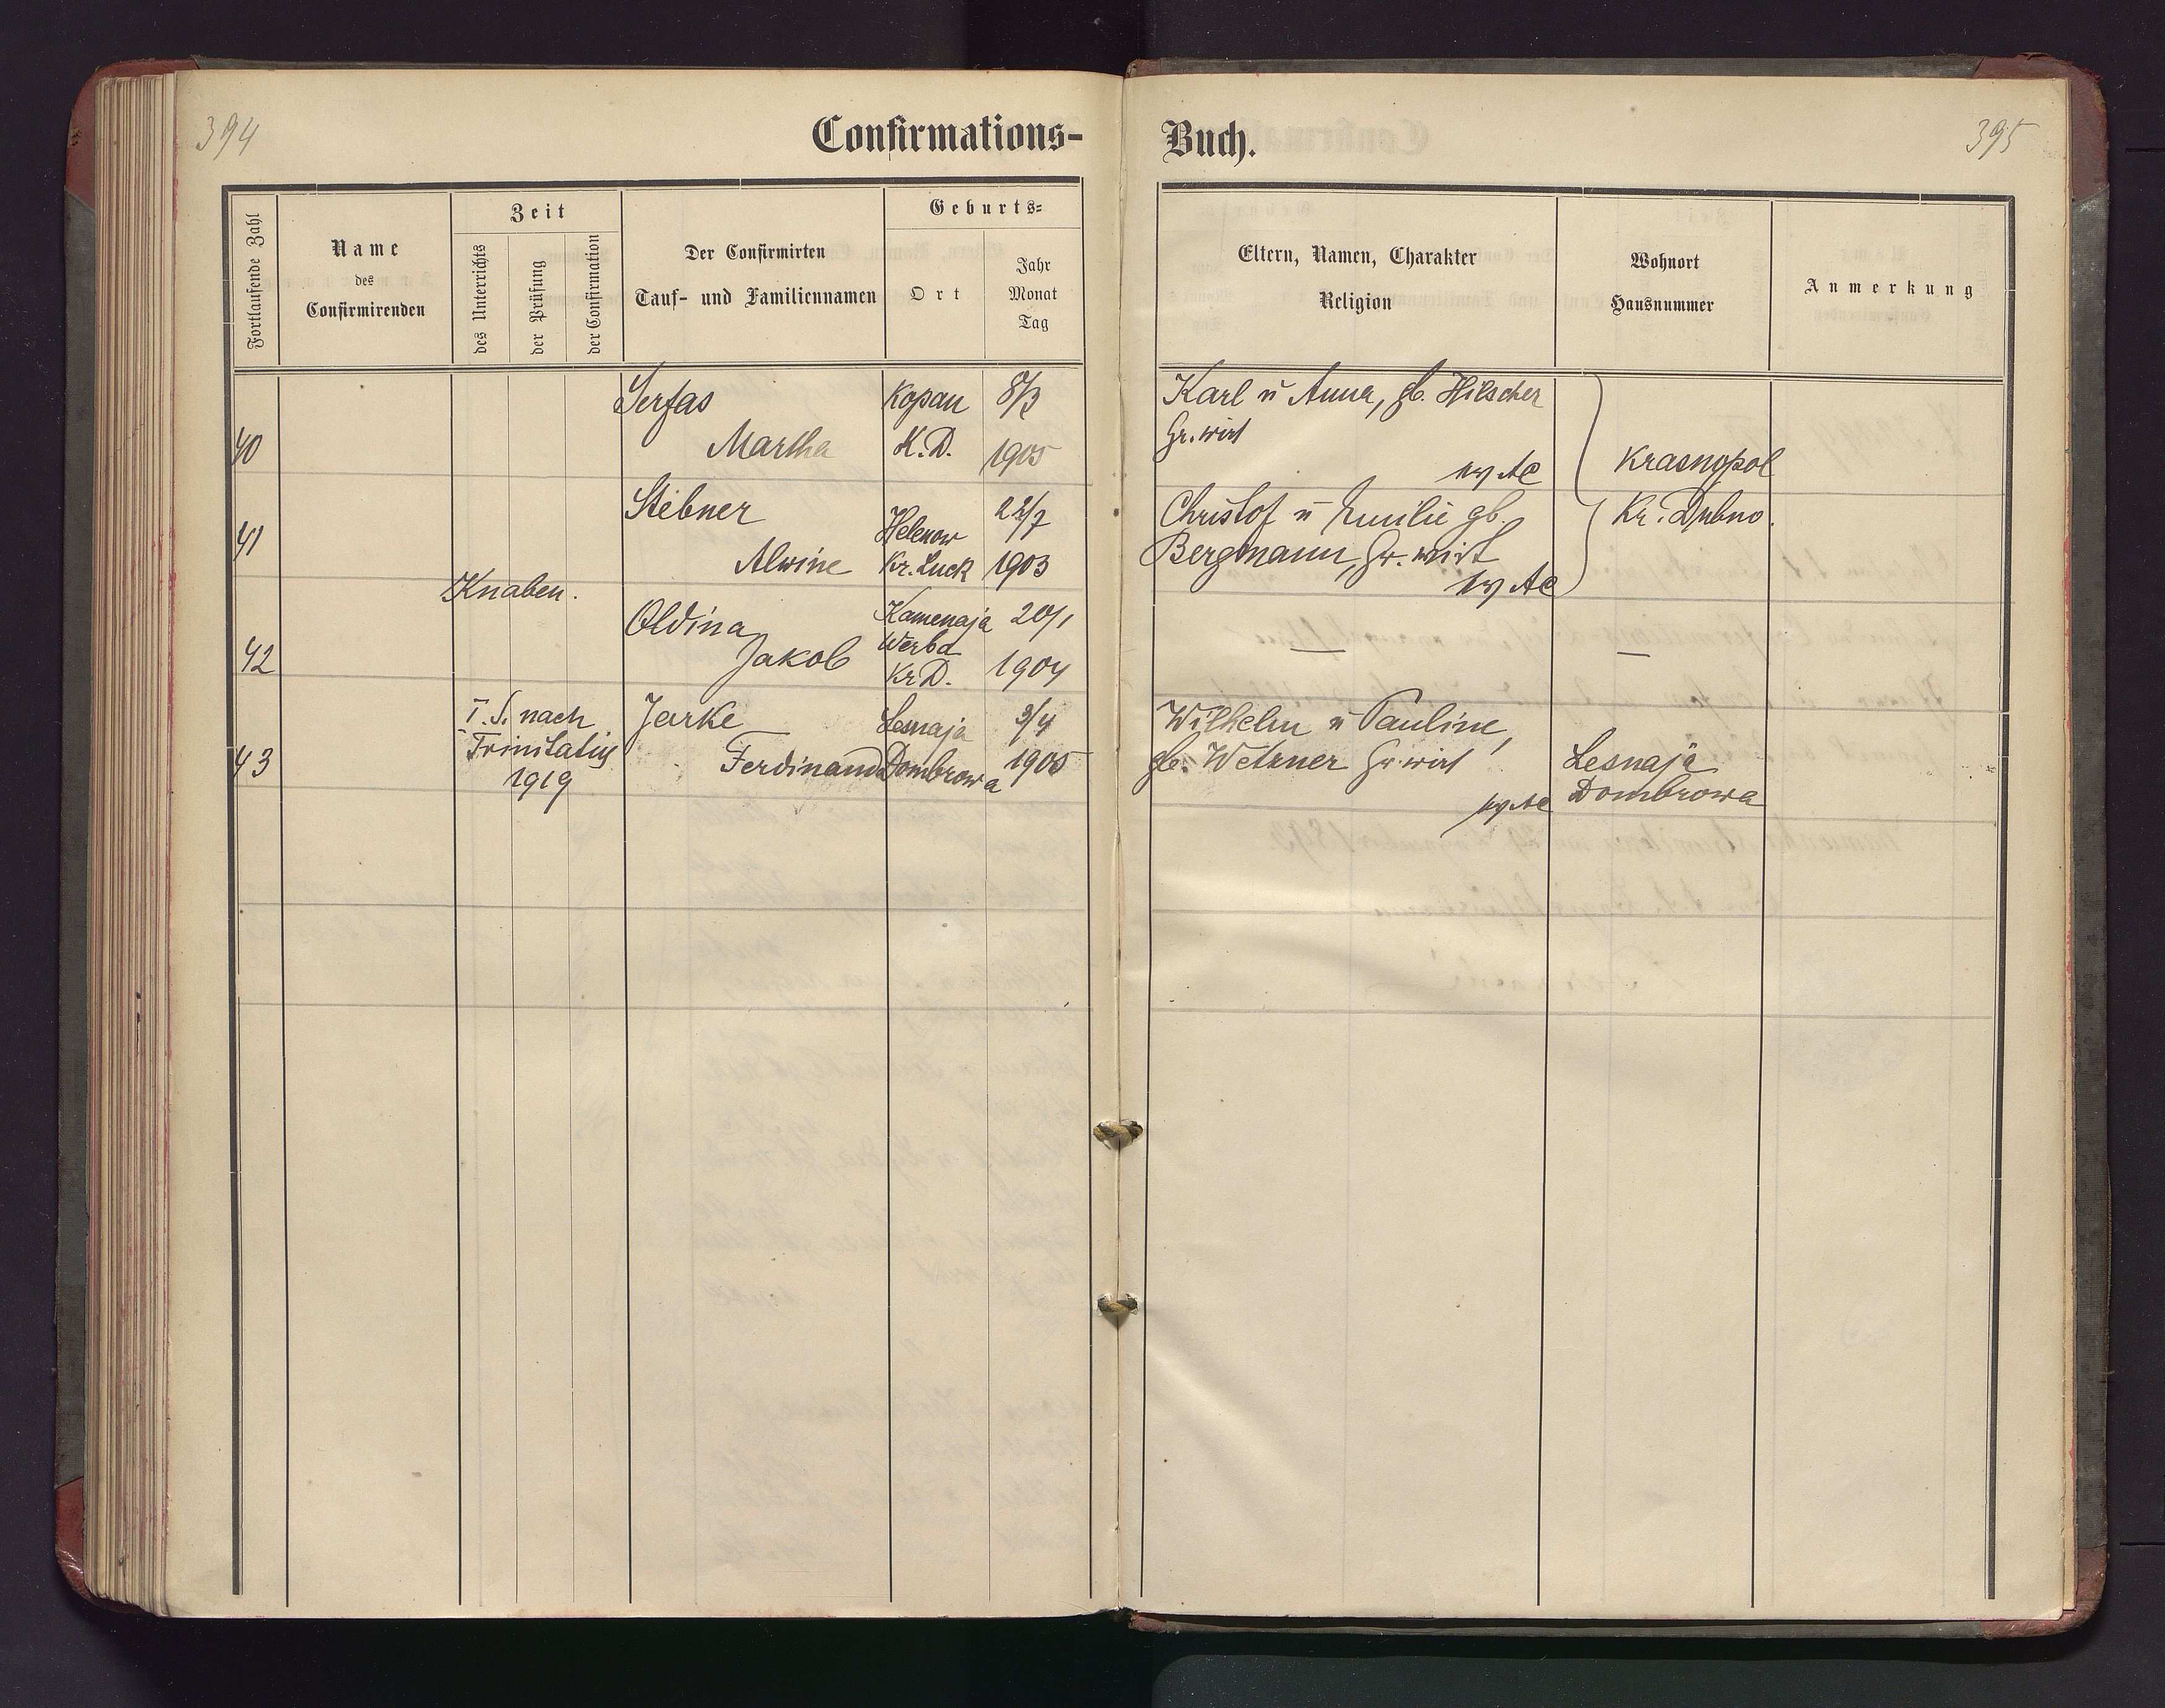 394
Confirmations-
Fortlaufende Zahl
Name
des
Confirmirenden
Zeit
des Unterrichts
der Prüfung
der Confirmation
Der Confirmirten
Tauf- und Familiennamen
Geburts-
Ort
Jahr
Monat
Tag
40
Serfas
Martha
Kopan
K. D.
8/3
1905
41
Stebner
Alwine
Helenow
Kr. Luck
22/7
1903
Knaben.
42
Oldina
Jakob
Kamenaja
Werba
Kr D.
20/1
1904
43
T. S. nach
Trinitatis
1919
Jerke
Ferdinand
Lesnaja
Dombrowa
3/4
1905
Buch.
395
Eltern, Namen, Charakter
Religion
Wohnort
Hausnummer
Anmerkung
Karl u Anna, gb. Hilscher
Gr. wirt
ev AC
Krasnopol
Christof u Emilie gb.
Bergmann, Gr. wirt
ev AC
Kr. Dubno.
—
—
Wilhelm u Pauline,
gb. Wetzner Gr wirt
ev AC
Lesnaja
Dombrowa